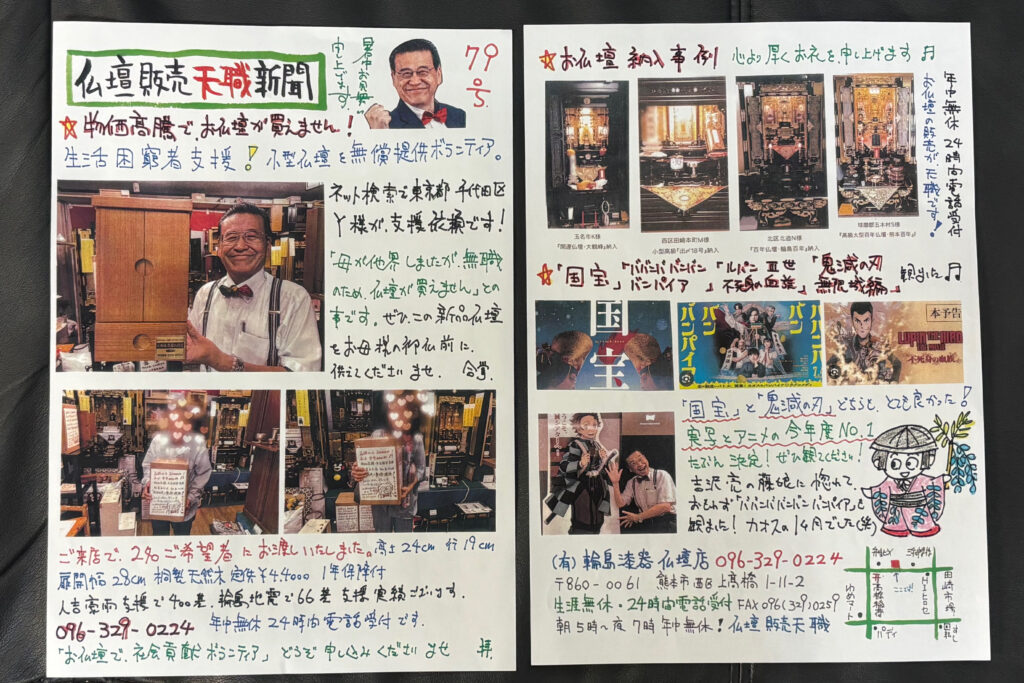 仏壇販売天職新聞
暑中お見舞
申上げます。
79号
☆物価高騰でお仏壇が買えません!
生活困窮者支援!小型仏壇を無償提供ボランティア。
ネット検索で東京都千代田区
Y様が、支援依頼です!
「母が他界しましたが、無職
のため、仏壇が買えません」との
事です。ぜひ、この新品仏壇
をお母様の御仏前に、
供えてくださいませ。合掌。
ご来店で、2名ご希望者にお渡しいたしました。高さ24cm 行19cm
扉開幅28cm 桐製天然木 定価¥44000 1年保障付
人吉豪雨支援で400基、輪島地震で66基支援実績ございます。
096-329-0224 年中無休24時間電話受付です。
「お仏壇で、社会貢献ボランティア」どうぞ申し込みくださいませ 拝、
☆お仏壇納入事例 心より厚くお礼を申し上げます♬
年中無休24時間電話受付
お仏壇の販売が天職です!
玉名市K様
『開運仏壇・大鶴峰』納入
西区田崎本町M様
小型高級『出〆18号』納入
北区北迫N様
『百年仏壇・輪島百年』納入
球磨郡五木村S様
『高級大型百年仏壇・熊本百年』
☆「国宝」「ババンババンバンバンパイア」「ルパン三世 不死身の血族」「鬼滅の刃 無限城編」観ました♬
国宝
ババンババンバンバンパイア
本予告
LUPIN THE IIIRD
不死身の血族
「国宝」と「鬼滅の刃」どちらも、とても良かった!
実写とアニメの今年度NO.1
たぶん決定!ぜひ観てください!
吉沢亮の藤娘に惚れて、
おもわず「ババンババンバンバンパイア」も
観ました!カオスの1ヶ月でした(笑)
(有)輪島漆器仏壇店 096-329-0224
〒860-0061 熊本市西区上高橋1-11-2
生涯無休・24時間電話受付 FAX096(329)0259
朝5時〜夜7時 年中無休!仏壇販売天職
ココ
高橋稲荷
ゆめマート
田崎市場
パティ